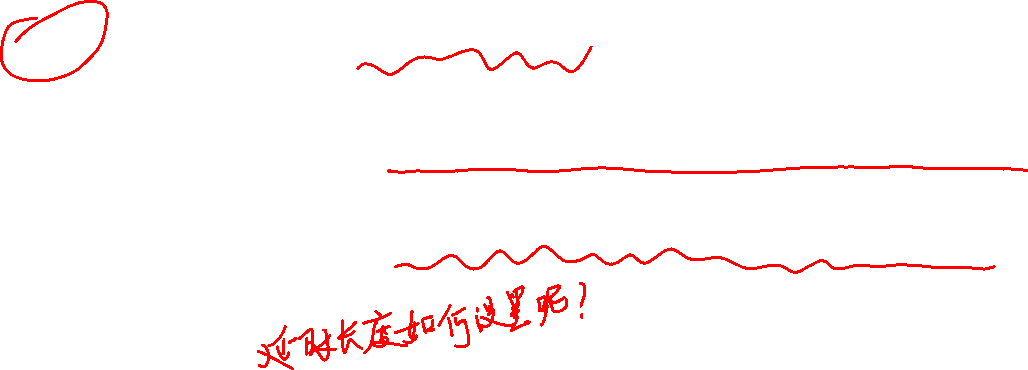 延时长度如何设置呢?